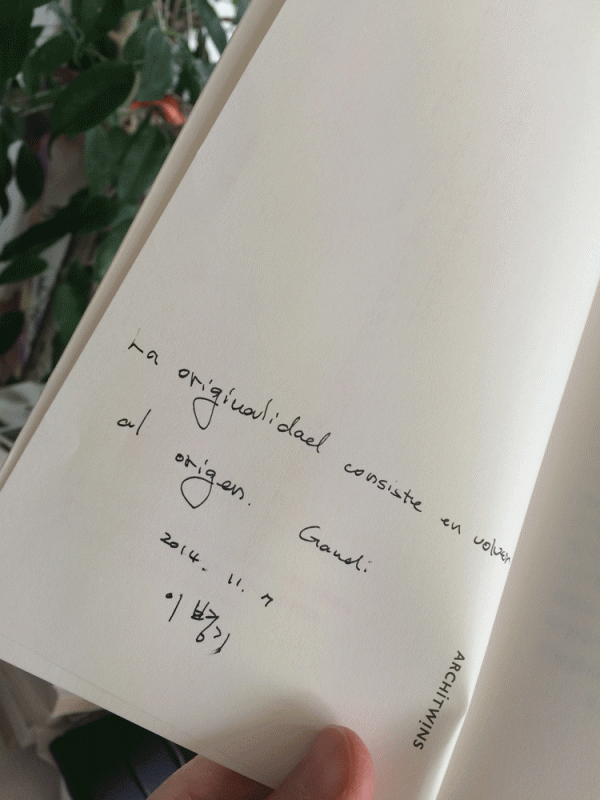 La originalidad consiste en volver
al origen.
Gaudi
2014. 11. 7
ARCHiTWiNS